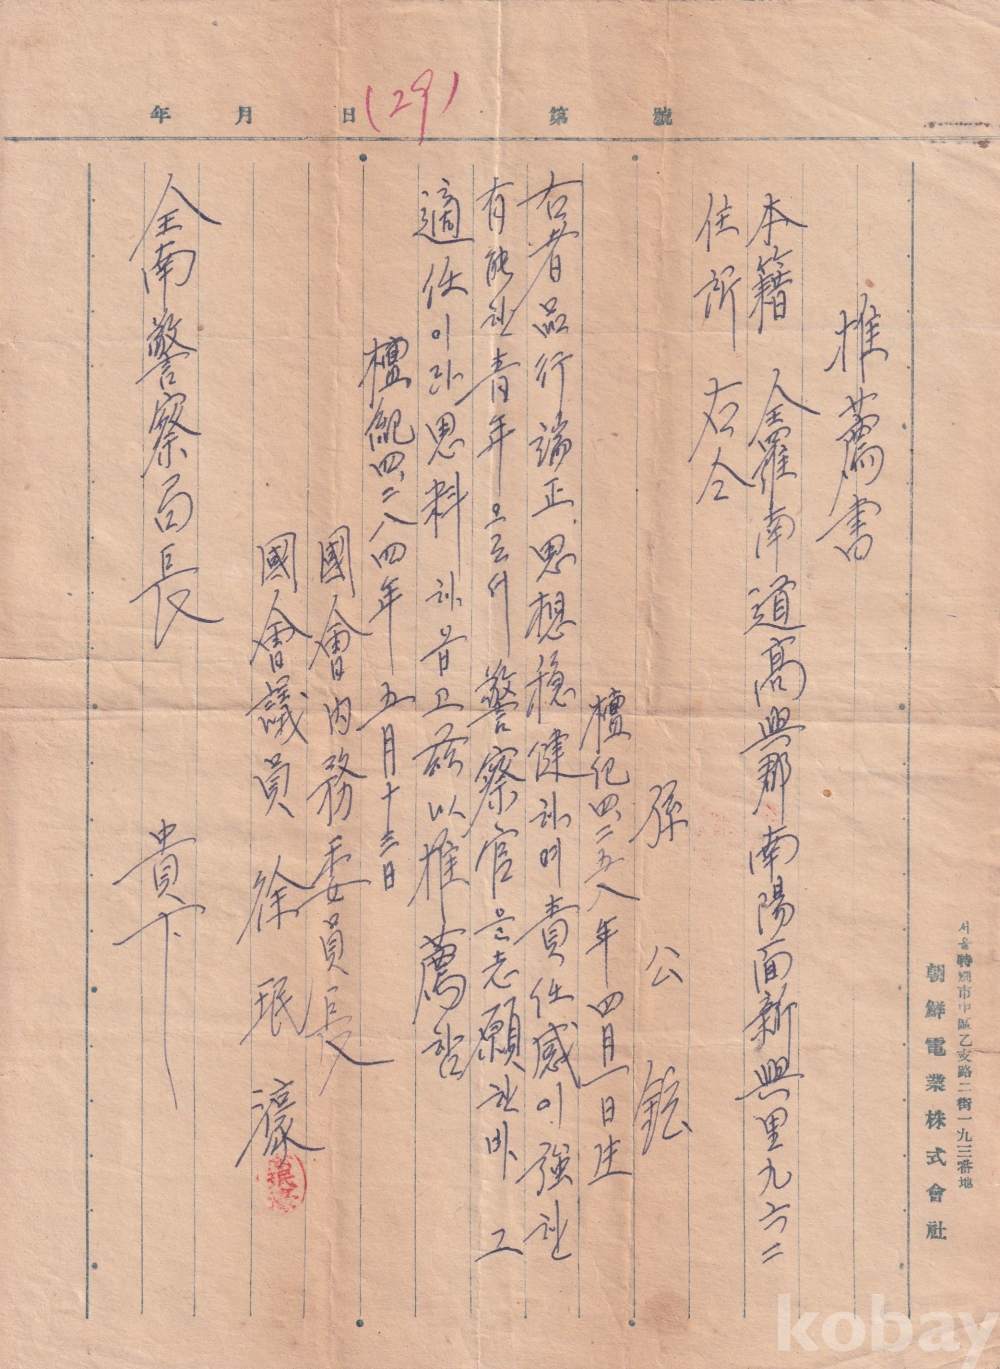 年 月 日 第 號
(29)
推薦書
本籍 全羅南道高興郡南陽面新興里九六二
住所 右仝
孫公鉉
檀紀四二五八年四月一日生
右者品行端正思想穩健하며責任感이強한
有能한青年으로서警察官을志願한바그
適任이라思料하읍고玆以推薦함
檀紀四二八四年五月十三日
國會內務委員長
國會議員 徐珉濠
全南警察局長 貴下
서울特別市中區乙支路二街一九三番地
朝鮮電業株式會社
kobay